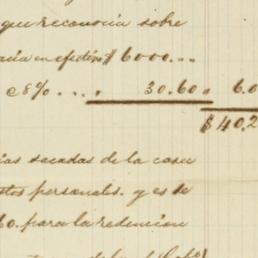 que reconocia sobre
en efectivo $ 6000...
c 8% .... 30.60. 6.0
$ 40.2
ias sacadas de la casa
stos personales. y es de
60. para la redencion